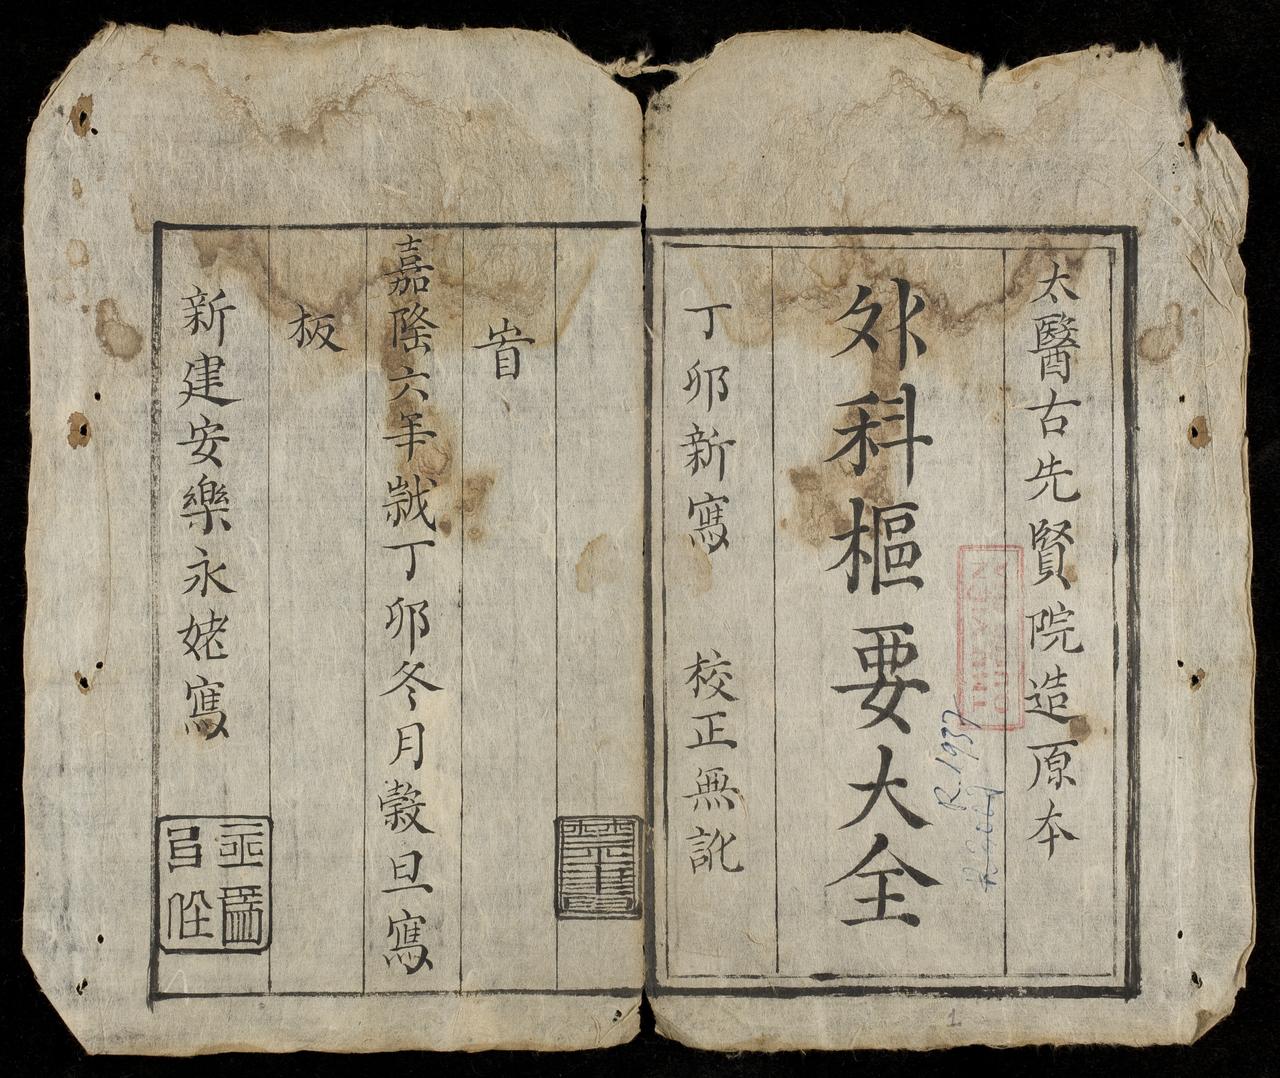 太醫古先賢院造原本
外科樞要大全
丁卯新寫 校正無訛
嘉隆六年歲丁卯冬月穀旦寫
板
新建安樂永姥寫
R.1937
1